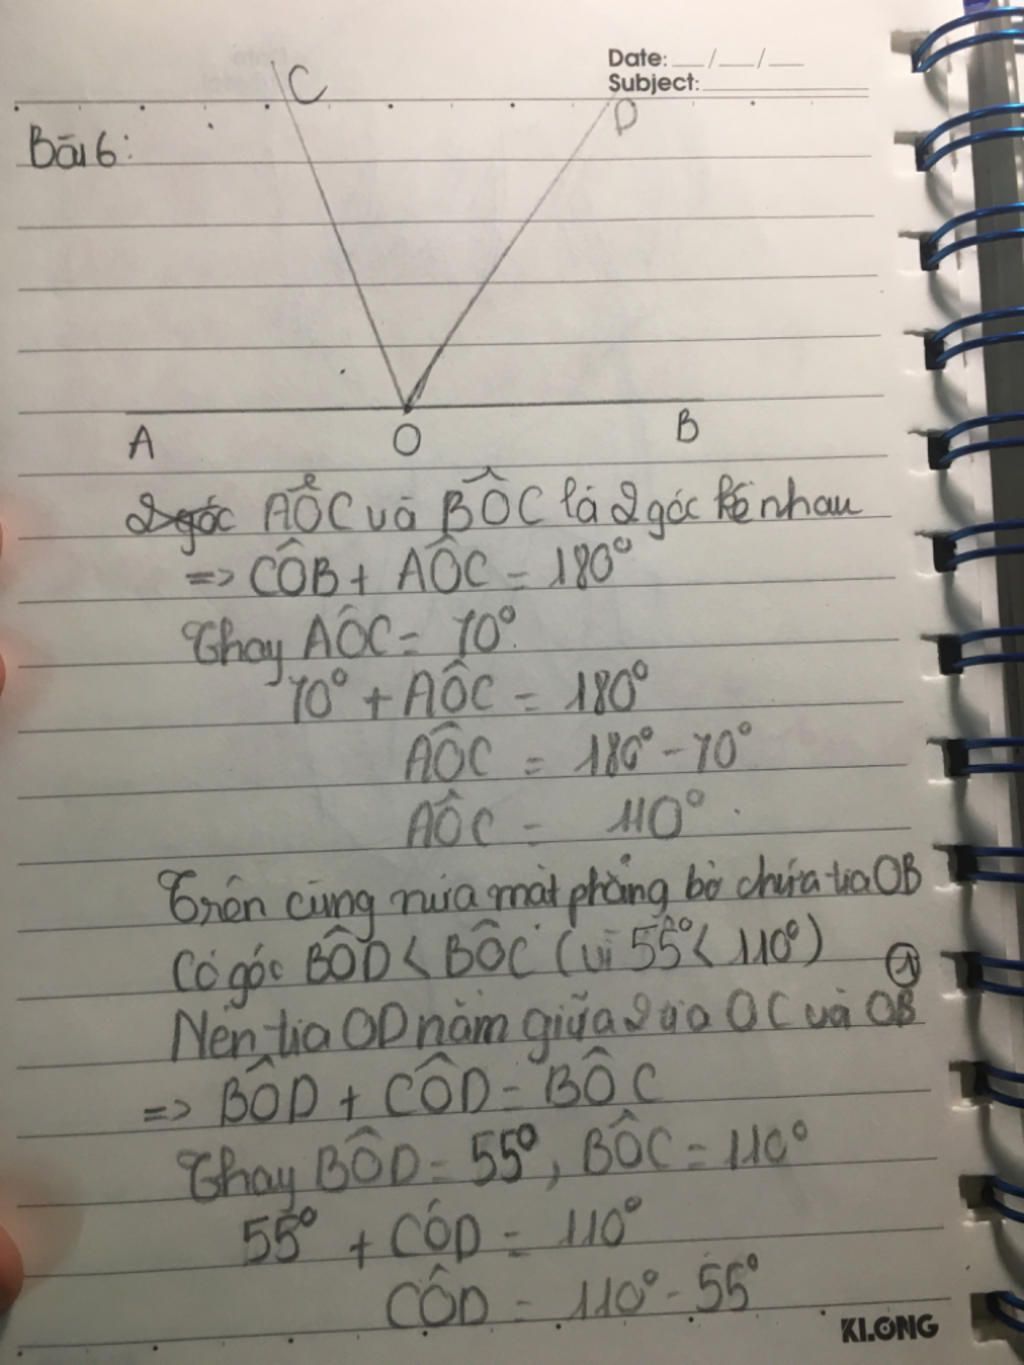 Date: __/__/__
Subject:
C
D
Bài 6:
A
O
B
2 góc AÔC và BÔC là 2 góc kề nhau
=> CÔB + AÔC = 180°
Thay AÔC = 70°
70° + AÔC = 180°
AÔC = 180° - 70°
AÔC = 110°.
Trên cùng nửa mặt phẳng bờ chứa tia OB
Có góc BÔD < BÔC (vì 55° < 110°)
①
Nên tia OD nằm giữa 2 tia OC và OB
=> BÔD + CÔD = BÔC
Thay BÔD = 55°, BÔC = 110°
55° + CÔD = 110°
CÔD = 110° - 55°
KLONG